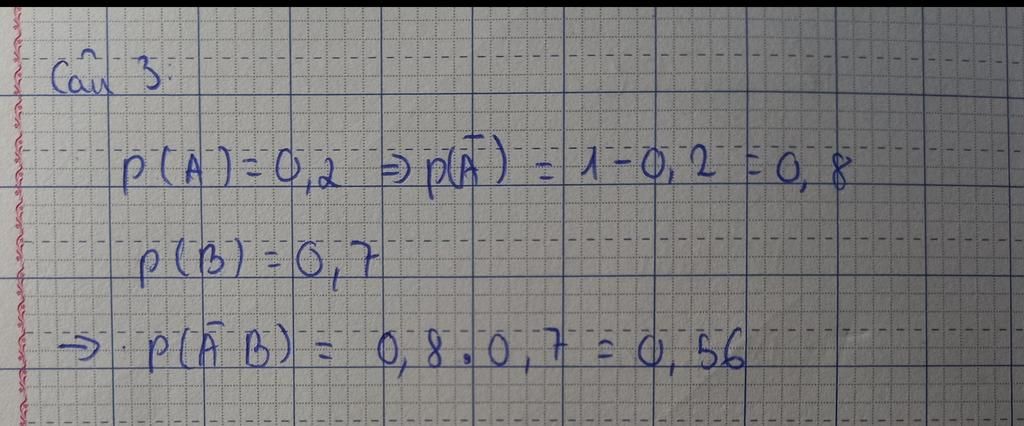 Câu 3:
P(A) = 0,2 ⇒ P(Ā) = 1 - 0,2 = 0,8
P(B) = 0,7
⇒ P(Ā B) = 0,8 . 0,7 = 0,56